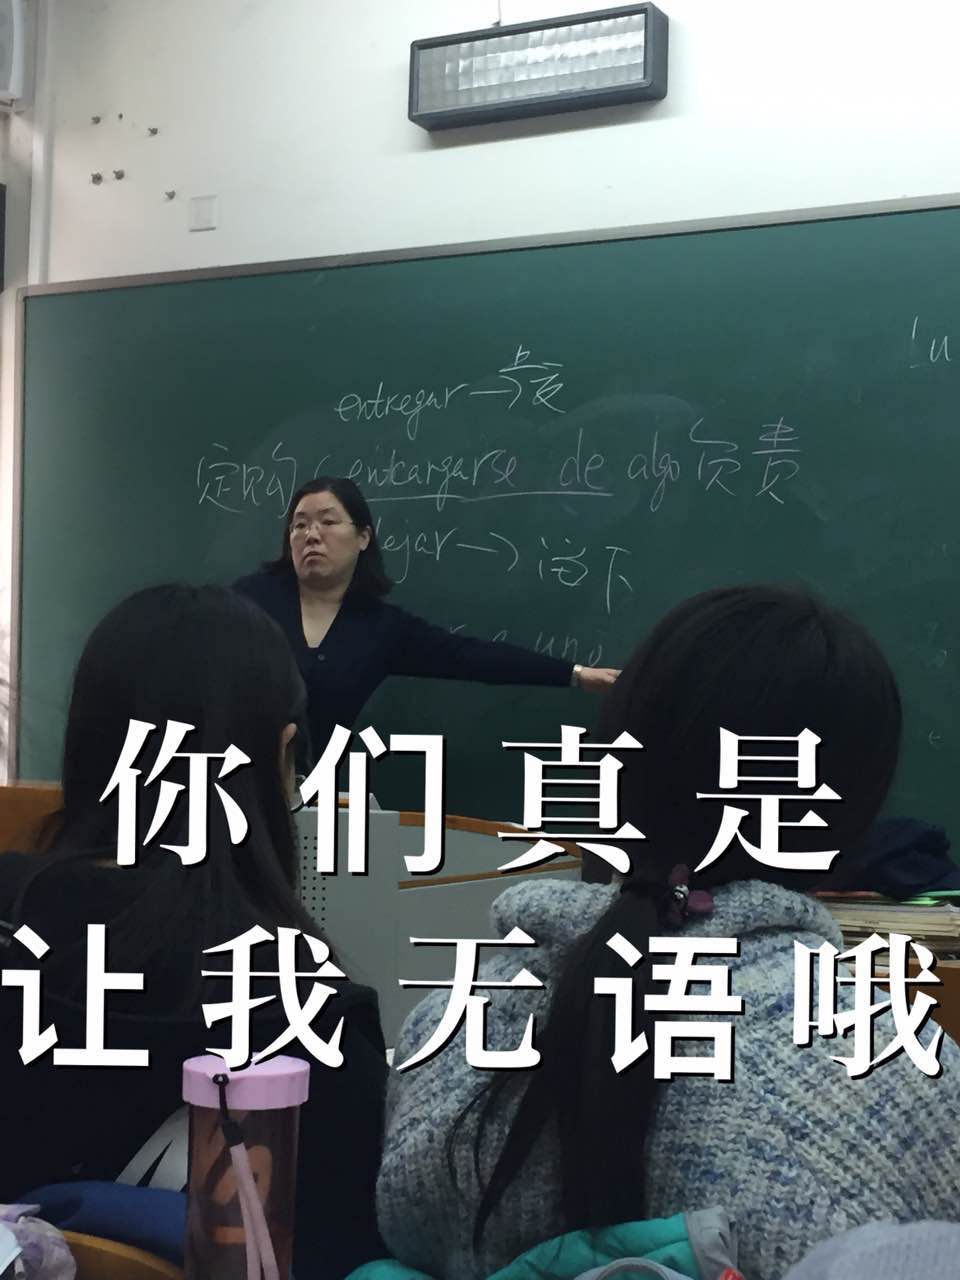 entregar → 上交
定购 encargarse de algo 负责
dejar → 留下
a uno
你们真是
让我无语哦